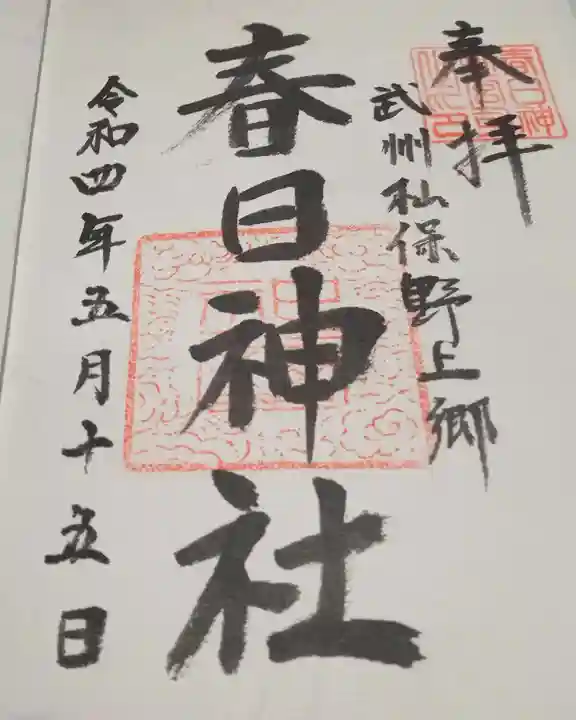 奉拝
武州杣保野上郷
春日神社
令和四年五月十五日